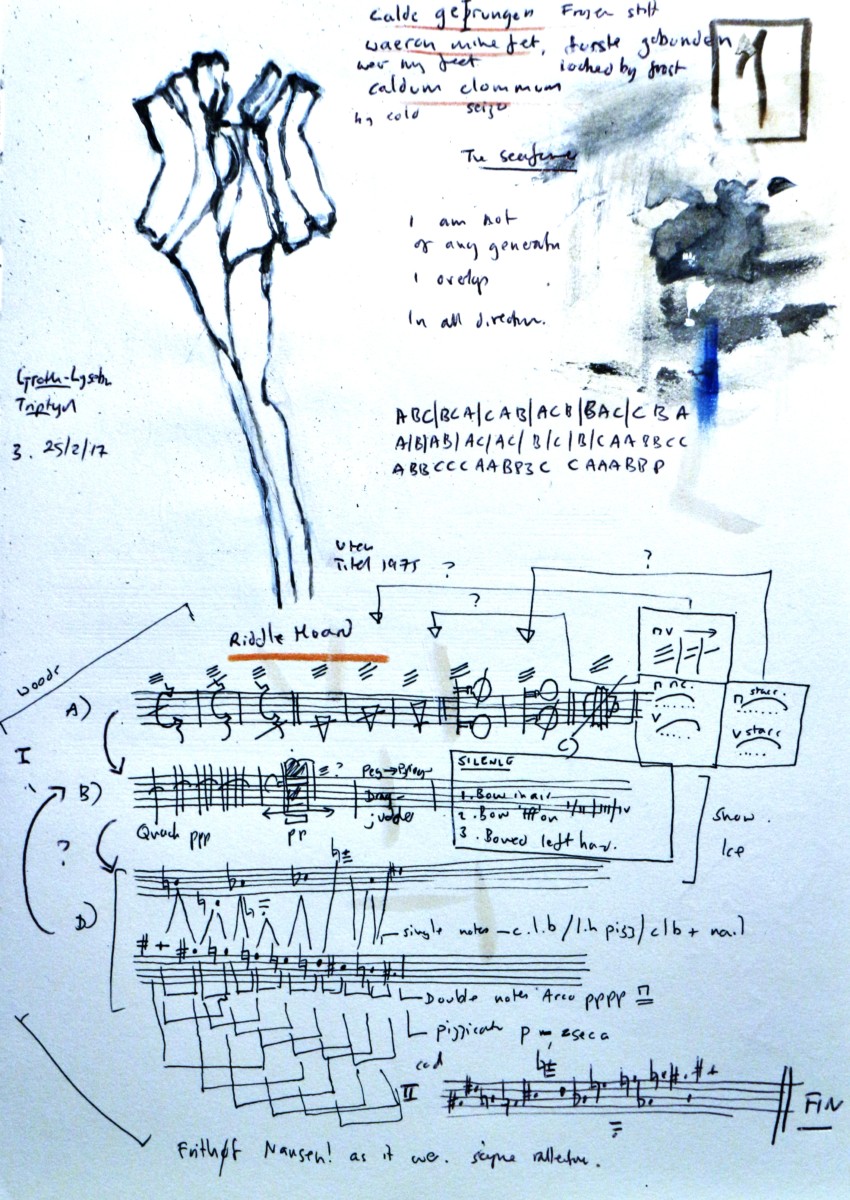 calde geþrungen Frozen stiff
waeron mine fet, forste gebunden
wer my feet locked by frost
caldum clommum
by cold seize
The seafarer
1
I am not
of any generation
I overlap
In all direction.
Triptych
3. 25/2/17
ABC|BCA|CAB|ACB|BAC|CBA
A|B|AB|AC|AC|B|C|B|CAABBCC
ABBCCCAABB
Titel 1975
?
?
?
Riddle Hoard
woods
A)
I
nv
n nc.
v
n stacc.
v stacc
C)
B)
≡ ?
Drag -
judder
Quack ppp
SILENCE
1. Bow in air
2. Bow on
3. Bowed left han.
Snow.
Ice
?
D)
single notes - c.l.b / l.h pizz / clb + nail
Double notes Arco pppp
pizzicato p
II
FIN
Nansen! as it we.